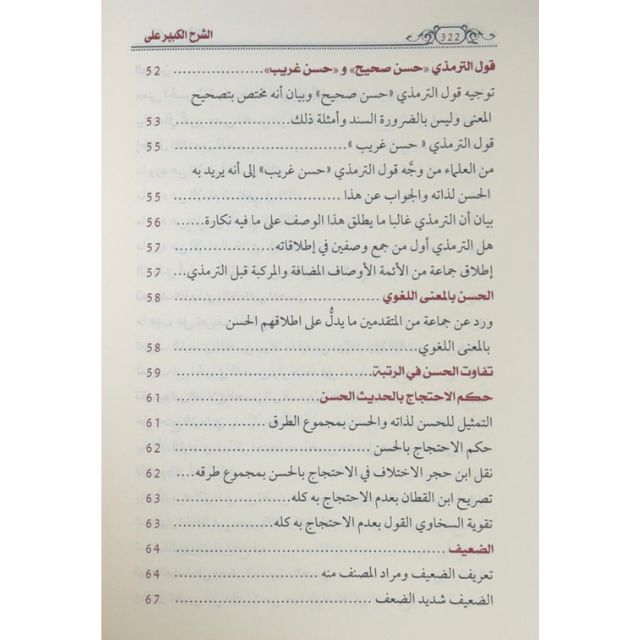 322
الشرح الكبير على
قول الترمذي «حسن صحيح» و «حسن غريب»....................... 52
توجيه قول الترمذي «حسن صحيح» وبيان أنه مختص بتصحيح
المعنى وليس بالضرورة السند وأمثلة ذلك....................... 53
قول الترمذي « حسن غريب »....................... 55
من العلماء من وجَّه قول الترمذي «حسن غريب» إلى أنه يريد به
الحسن لذاته والجواب عن هذا....................... 55
بيان أن الترمذي غالبا ما يطلق هذا الوصف على ما فيه نكارة...... 56
هل الترمذي أول من جمع وصفين في إطلاقاته....................... 57
إطلاق جماعة من الأئمة الأوصاف المضافة والمركبة قبل الترمذي... 57
الحسن بالمعنى اللغوي....................... 58
ورد عن جماعة من المتقدمين ما يدلُّ على اطلاقهم الحسن
بالمعنى اللغوي....................... 58
تفاوت الحسن في الرتبة....................... 59
حكم الاحتجاج بالحديث الحسن....................... 61
التمثيل للحسن لذاته والحسن بمجموع الطرق....................... 61
حكم الاحتجاج بالحسن....................... 62
نقل ابن حجر الاختلاف في الاحتجاج بالحسن بمجموع طرقه.... 62
تصريح ابن القطان بعدم الاحتجاج به كله....................... 63
تقوية السخاوي القول بعدم الاحتجاج به كله....................... 63
الضعيف....................... 64
تعريف الضعيف ومراد المصنف منه....................... 64
الضعيف شديد الضعف....................... 67